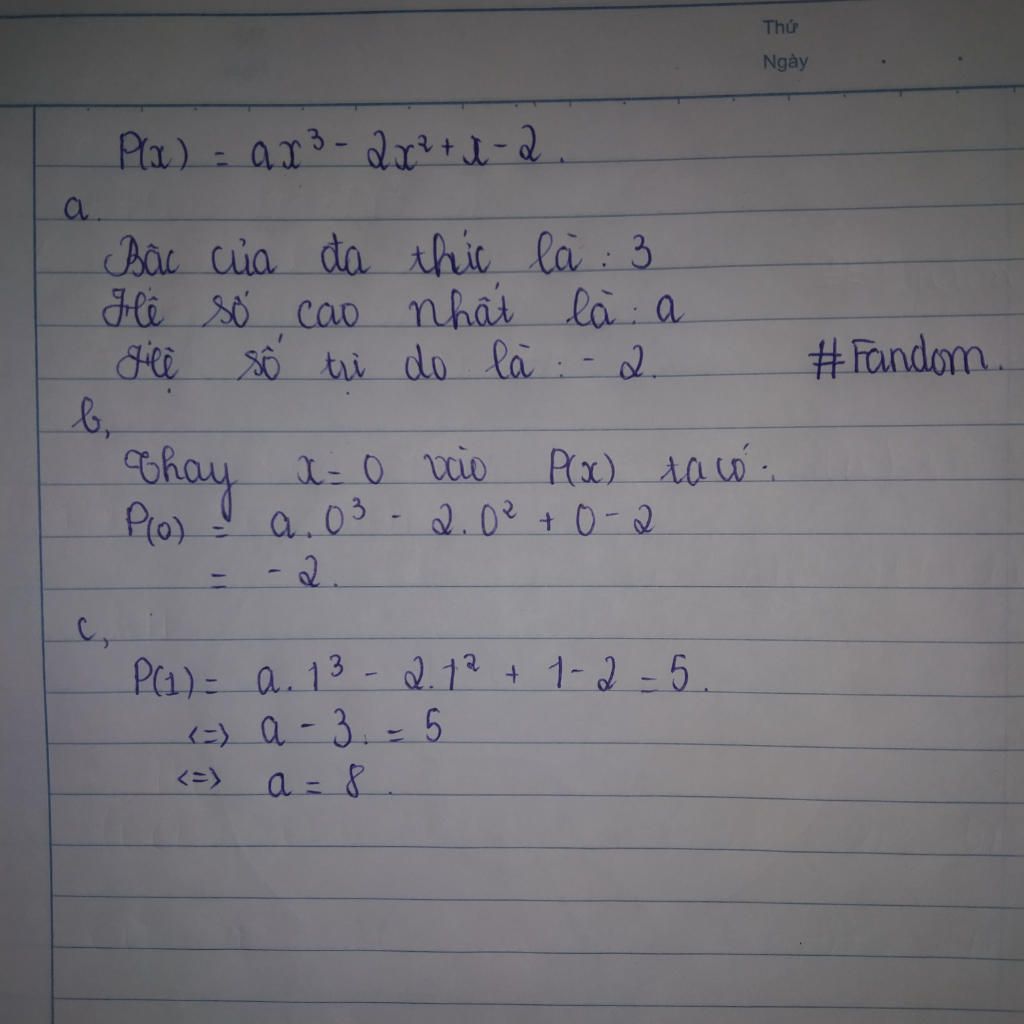 Thứ
Ngày
P(x) = ax³ - 2x² + x - 2.
a.
Bậc của đa thức là : 3
Hệ số cao nhất là : a
Hệ số tự do là : - 2.
#Fandom.
b,
Thay x = 0 vào P(x) ta có :
P(0) = a.0³ - 2.0² + 0 - 2
= - 2.
c,
P(1) = a.1³ - 2.1² + 1 - 2 = 5.
<=> a - 3. = 5
<=> a = 8.